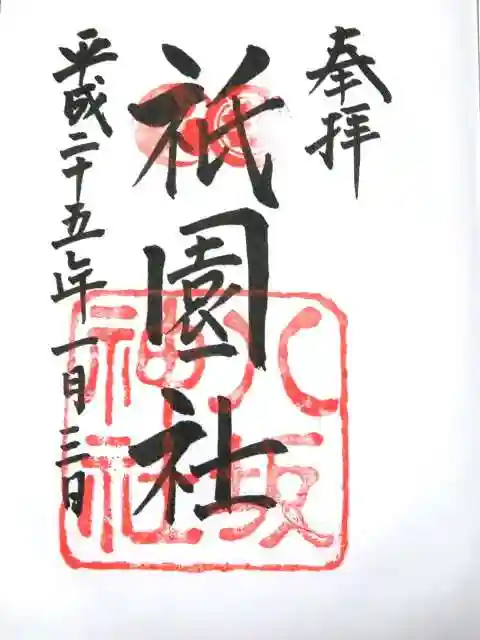 奉拝
祇園社
八坂
神社
平成二十五年一月三日